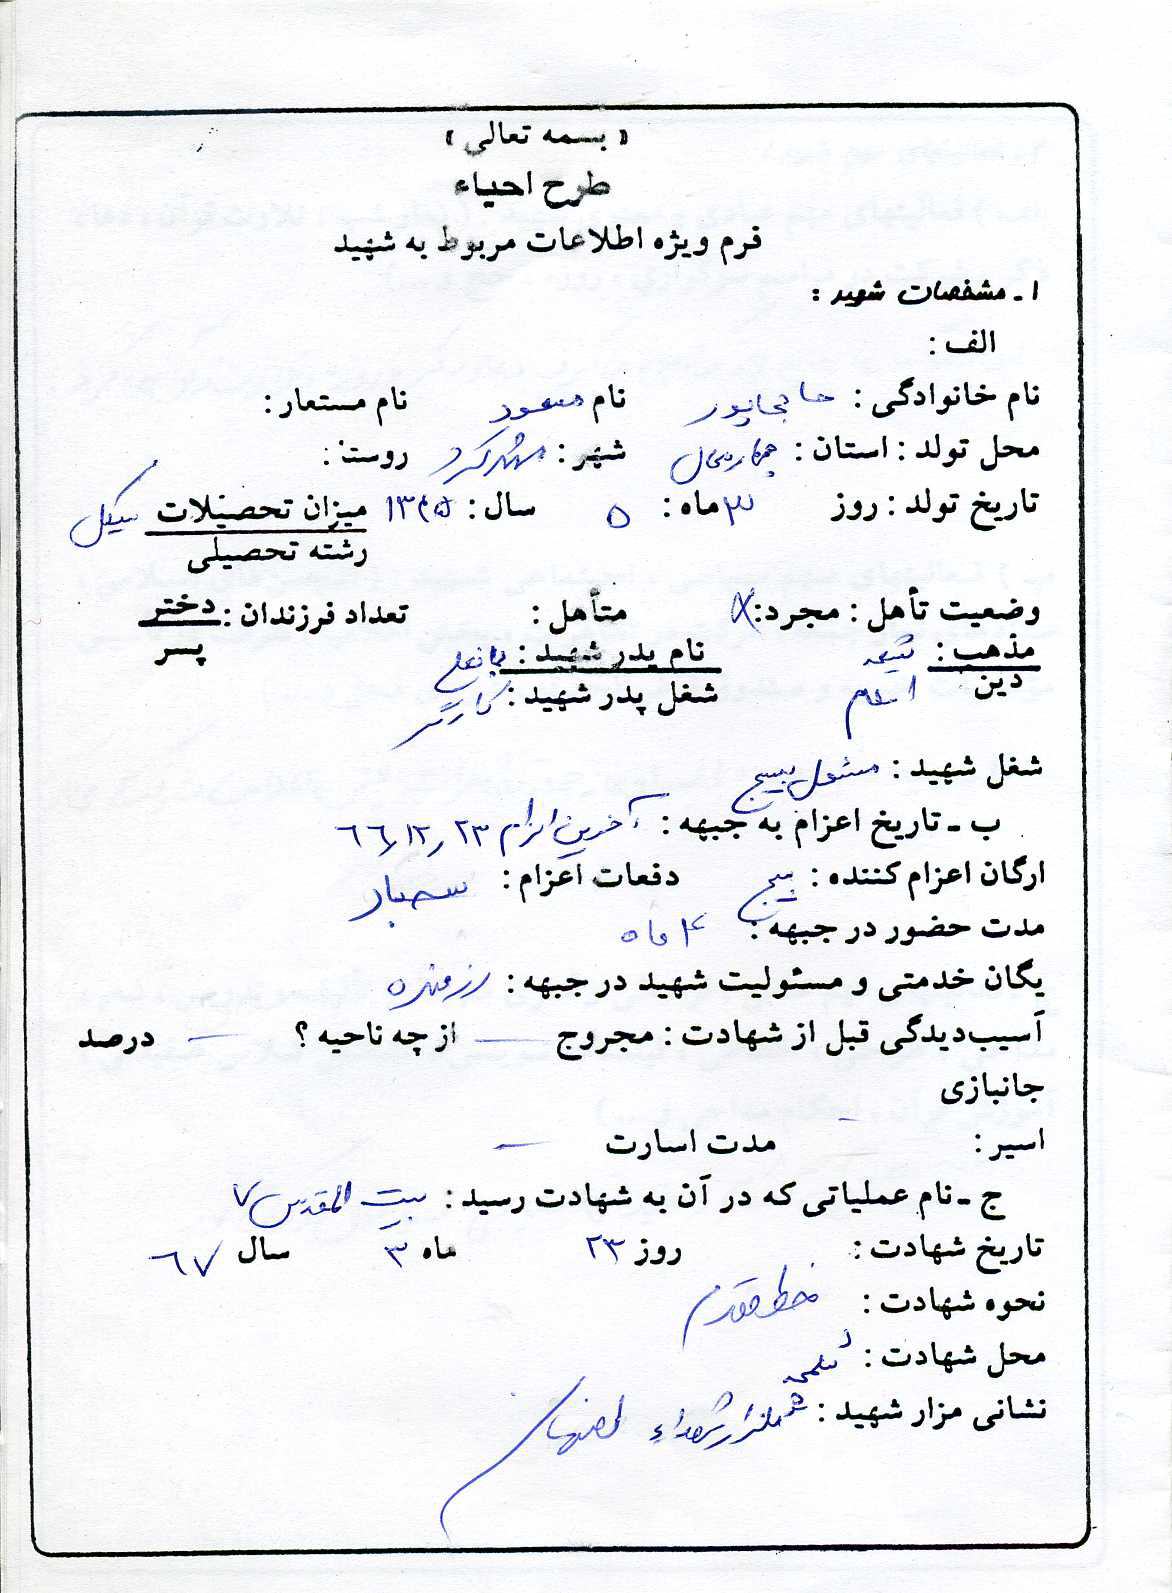 « بسمه تعالی »
طرح احیاء
فرم ویژه اطلاعات مربوط به شهید
۱ ـ مشخصات شهید :
الف :
نام خانوادگی : حاجی‌پور نام مسعود نام مستعار :
محل تولد : استان : چهارمحال شهر : شهرکرد روستا :
تاریخ تولد : روز ۳ ماه : ۵ سال : ۱۳۴۵ میزان تحصیلات سیکل
رشته تحصیلی
وضعیت تأهل : مجرد : X متأهل : تعداد فرزندان : دختر
پسر
مذهب : شیعه نام پدر شهید :
دین اسلام شغل پدر شهید : کارگر
شغل شهید : مسئول بسیج
ب ـ تاریخ اعزام به جبهه : آخرین اعزام ۲۳ ر ۱۲ ر ۶۶
ارگان اعزام کننده : بسیج دفعات اعزام : سه بار
مدت حضور در جبهه : ۴ ماه
یگان خدمتی و مسئولیت شهید در جبهه : رزمنده
آسیب‌دیدگی قبل از شهادت : مجروح — از چه ناحیه ؟ — درصد
جانبازی
اسیر : - مدت اسارت —
ج ـ نام عملیاتی که در آن به شهادت رسید : بیت المقدس ۷
تاریخ شهادت : روز ۲۳ ماه ۳ سال ۶۷
نحوه شهادت : خط مقدم
محل شهادت : شلمچه
نشانی مزار شهید : گلزار شهداء اصفهان